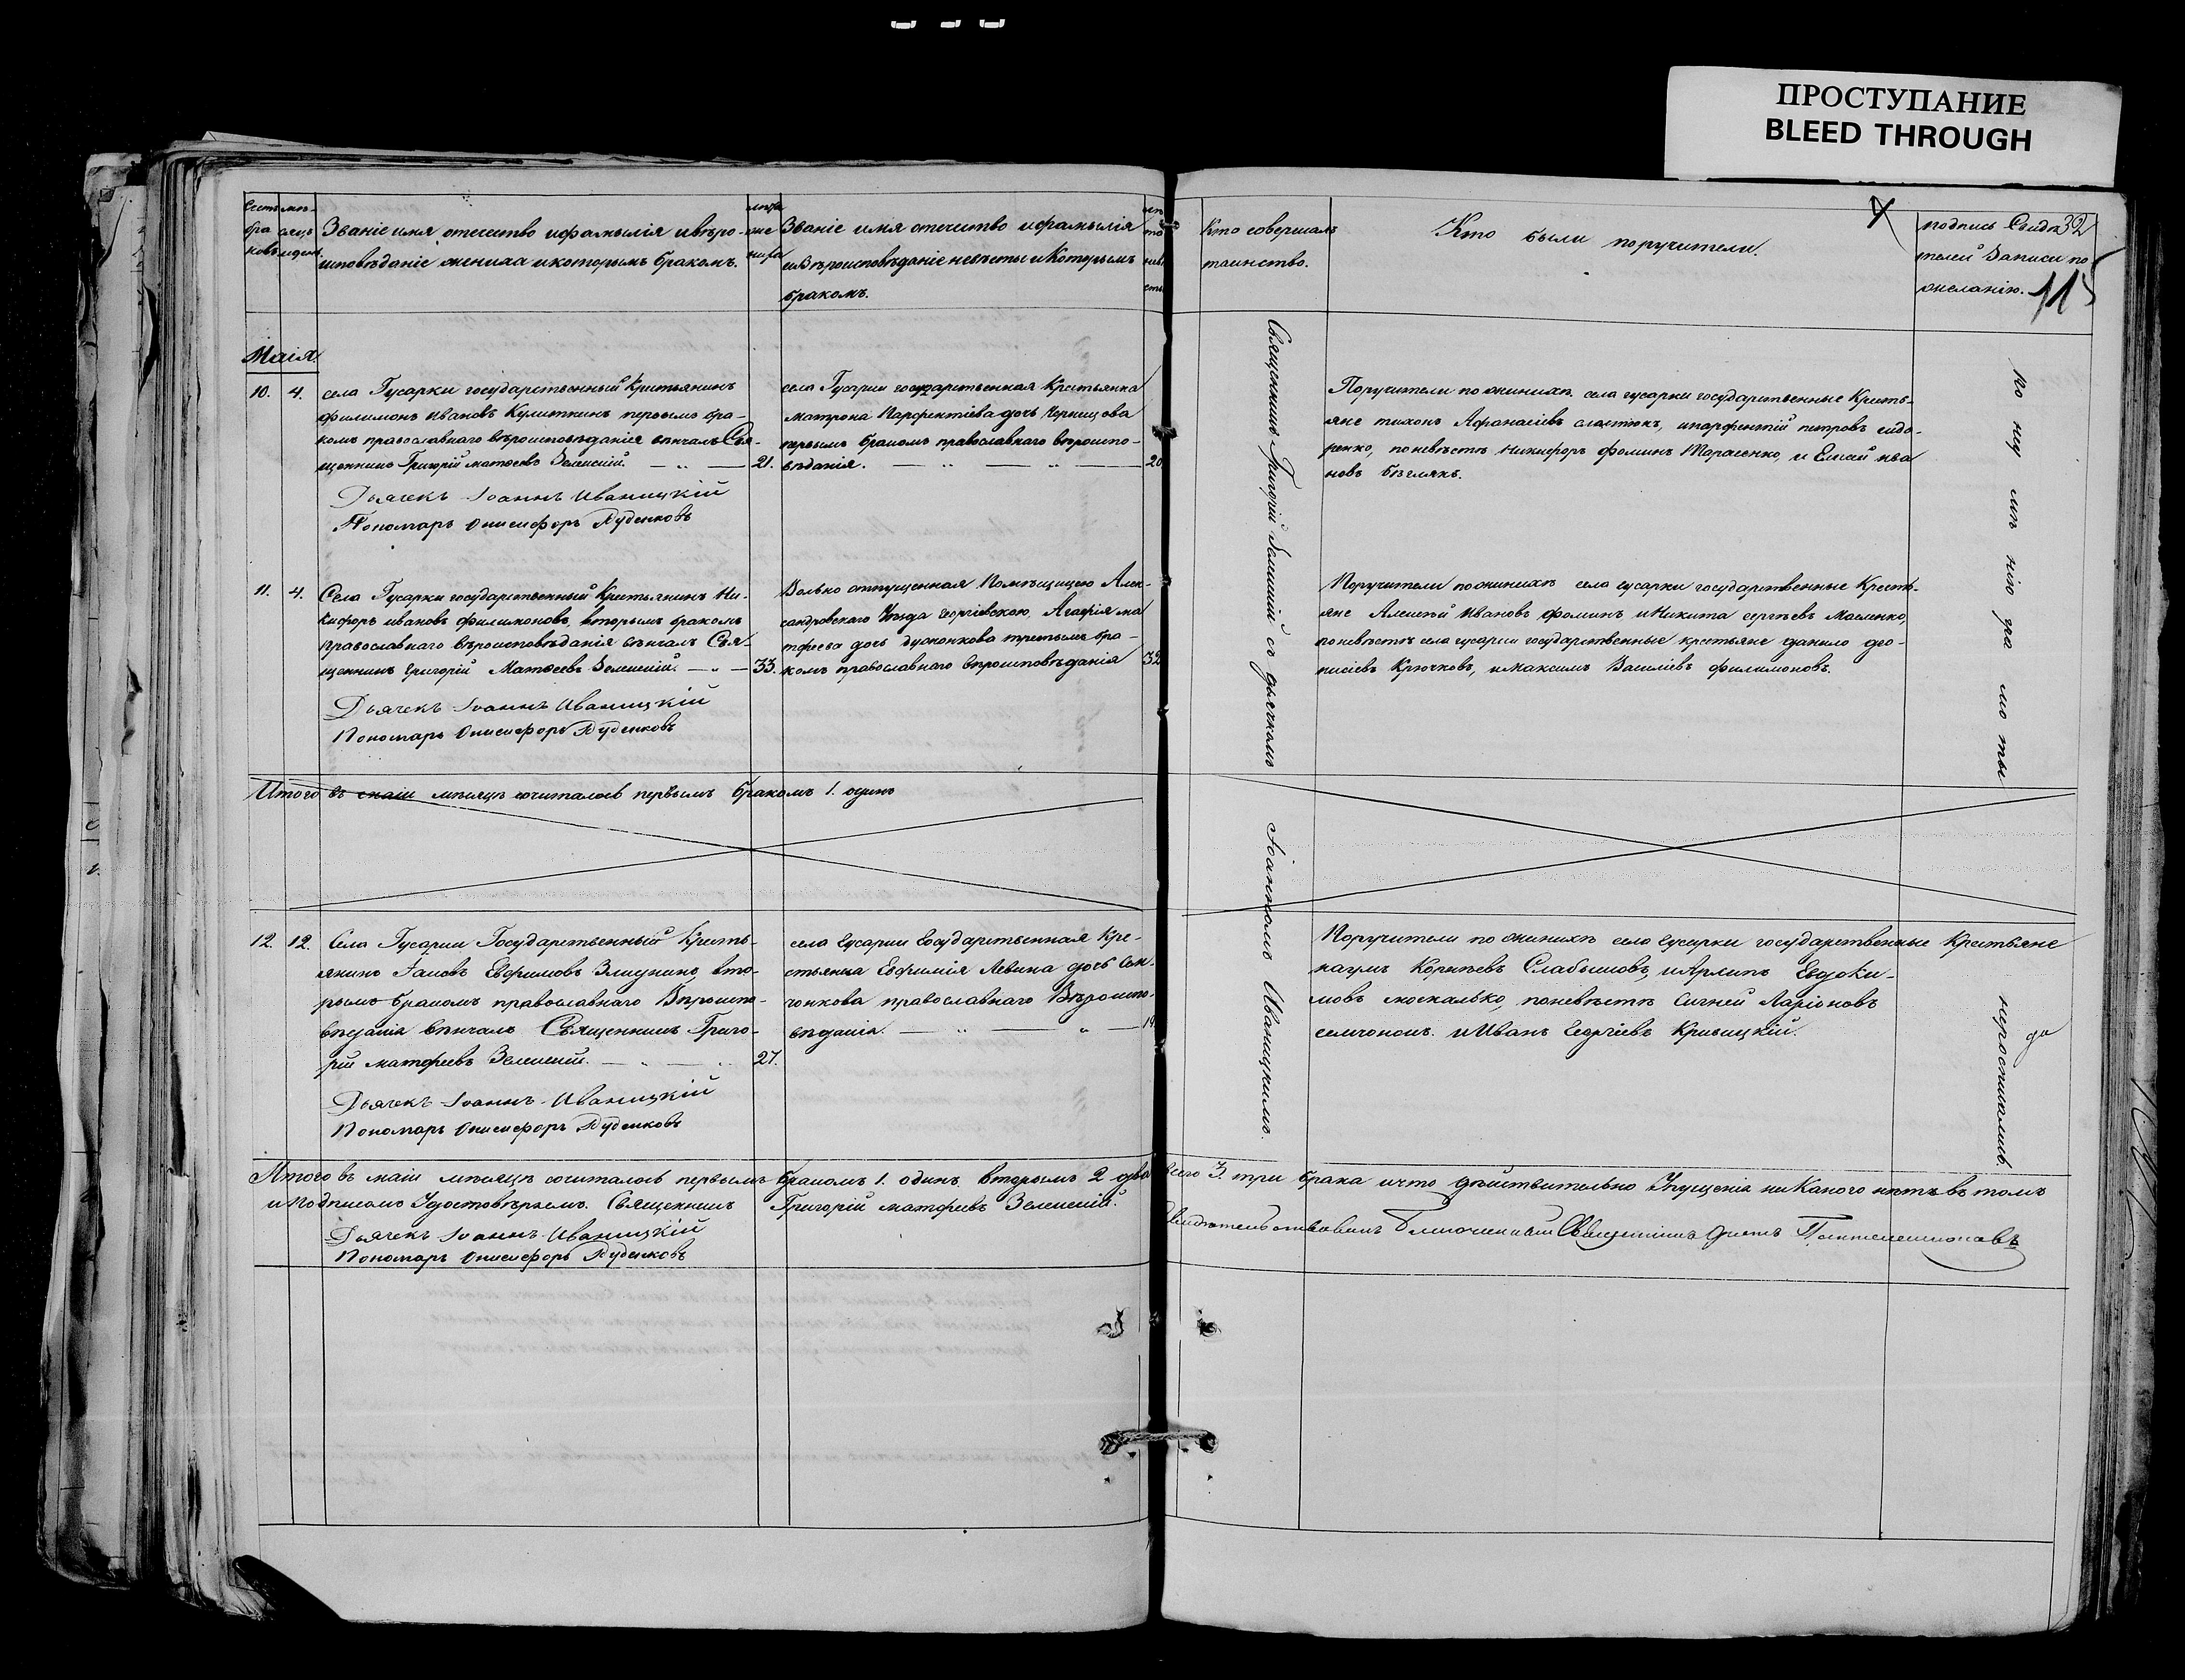 ПРОСТУПАНИЕ
BLEED THROUGH
32
11
Званіе имя отечество и фамылія и вѣро-
исповѣданіе жениха и которымъ бракомъ.
Званіе имя отечество и фамылія
и вѣроисповѣданіе невѣсты и которымъ
бракомъ.
Кто совершалъ
таинство.
Кто были поручители.
подпись Свидѣ
телей Записи по
желанію.
Маія
10. 4.
села Гусарки государственный Крестьянинъ
Филимонъ Ивановъ первымъ бра-
комъ православнаго вѣроисповѣданія вѣнчалъ Свя-
щенникъ Григорій Матѳеевъ Зеленскій. 21.
Дьячекъ Іоаннъ Иваницкій
Пономарь Онисифоръ Руденковъ
села Гусарки государственная Крестьянка
Матрона Парфентіева дочь
первымъ бракомъ православнаго вѣроиспо-
вѣданія. 20
Поручители по женихѣ села гусарки государственные Кресть-
яне тихонъ Афанасіевъ и парфентій петровъ сидо-
ренко, по невѣстѣ Никифоръ фоминъ Тарасенко, и Елисей ива
новъ
11. 4.
Села Гусарки государственный Крестьянинъ Ни-
кифоръ ивановъ филимоновъ, вторымъ бракомъ
православнаго вѣроисповѣданія вѣнчалъ Свя-
щенникъ Григорій Матѳеевъ Зеленскій. 33.
Дьячекъ Іоаннъ Иваницкій
Пономарь Онисифоръ Руденковъ
Вольно отпущенная Помѣщицею Алек-
сандровскаго Уѣзда Георгіевскою, Агафія ма
тфеева дочь третьимъ бра-
комъ православнаго вѣроисповѣданія 32
Поручители по женихѣ села гусарки государственные Кресть-
яне Алексѣй Ивановъ фоминъ и Никита сергѣевъ Масленко,
по невѣстѣ села гусарки государственные крестьяне данило део-
нисіевъ Крючковъ, и Максимъ Василіевъ филимоновъ.
Итого въ маіи мѣсяцѣ сочиталось первымъ бракомъ 1. одинъ
12. 12.
Села Гусарки Государственный Кресть-
янинъ Іаковъ Евфимовъ вто-
рымъ бракомъ православнаго Вѣроиспо-
вѣданія вѣнчалъ Священникъ Григо-
рій матфеевъ Зеленскій. 27.
Дьячекъ Іоаннъ Иваницкій
Пономарь Онисифоръ Руденковъ
села Гусарки Государственная Кре-
стьянка Евфимія Левина дочь Сем-
чонкова православнаго Вѣроиспо-
вѣданія. 19
Поручители по женихѣ села гусарки государственные Крестьяне
наумъ Корнѣевъ Слабышовъ, и Архипъ Евдоки-
мовъ москалько, по невѣстѣ Ларіоновъ
семчонокъ. и Иванъ Георгіевъ Кривицкій.
Священникъ Григорій Зеленскій съ дьячкомъ Іоанномъ Иваницкимъ.
По неу мѣ нію гра мо ты
нерасписались.
Итого въ маіи мѣсяцѣ сочиталось первымъ бракомъ 1. одинъ, вторымъ 2 два всего 3. три брака и что дѣйствительно Упущенія ни Какого нѣтъ въ томъ
и Подписомъ Удостовѣряемъ. Священникъ Григорій матфеевъ Зеленскій.
Дьячекъ Іоаннъ Иваницкій
Пономарь Онисифоръ Руденковъ
Свидѣтельствовалъ Благочинный Священникъ